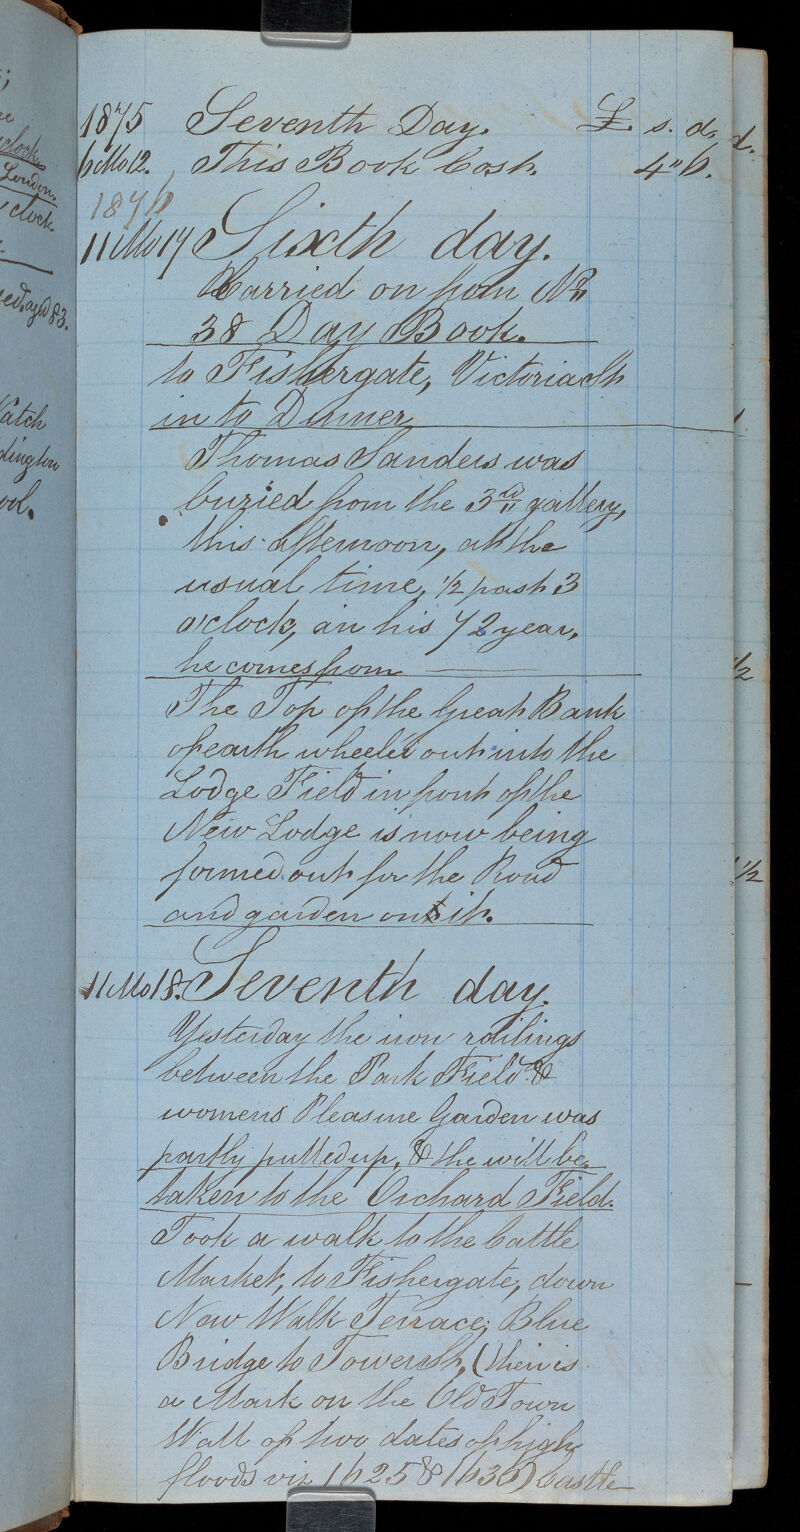 1875 Seventh Day. £. s. d.
6 Mo 12. This Book Cost. 4"6.
1876
11 Mo 17 Sixth day.
Carried on from No
38 Day Book.
to Fishergate, Victoria St
in to Dinner
Thomas Sanders was
buried from the 3rd gallery,
this afternoon, at the
usual time, 1/2 past 3
o'clock, in his 72 year,
he comes from
The Top of the Great Bank
of earth wheeled out into the
Lodge Field in front of the
New Lodge is now being
formed out for the Road
and garden on it.
11 Mo 18. Seventh day.
Yesterday the iron railings
between the Park Field &
womens Pleasure Garden was
partly pulled up, & the will be
taken to the Orchard Field.
Took a walk to the Cattle
Market, to Fishergate, down
New Walk Terrace, Blue
Bridge to Tower St, (their is
a Mark on the Old Town
Wall of two dates of high
floods viz 1625 & 1636) Castle